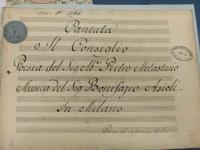 Cantata
o Il Consiglio
Poesia del Sig. Pietro Metastasio
Musica del Sig. Bonifazio Asioli
In Milano